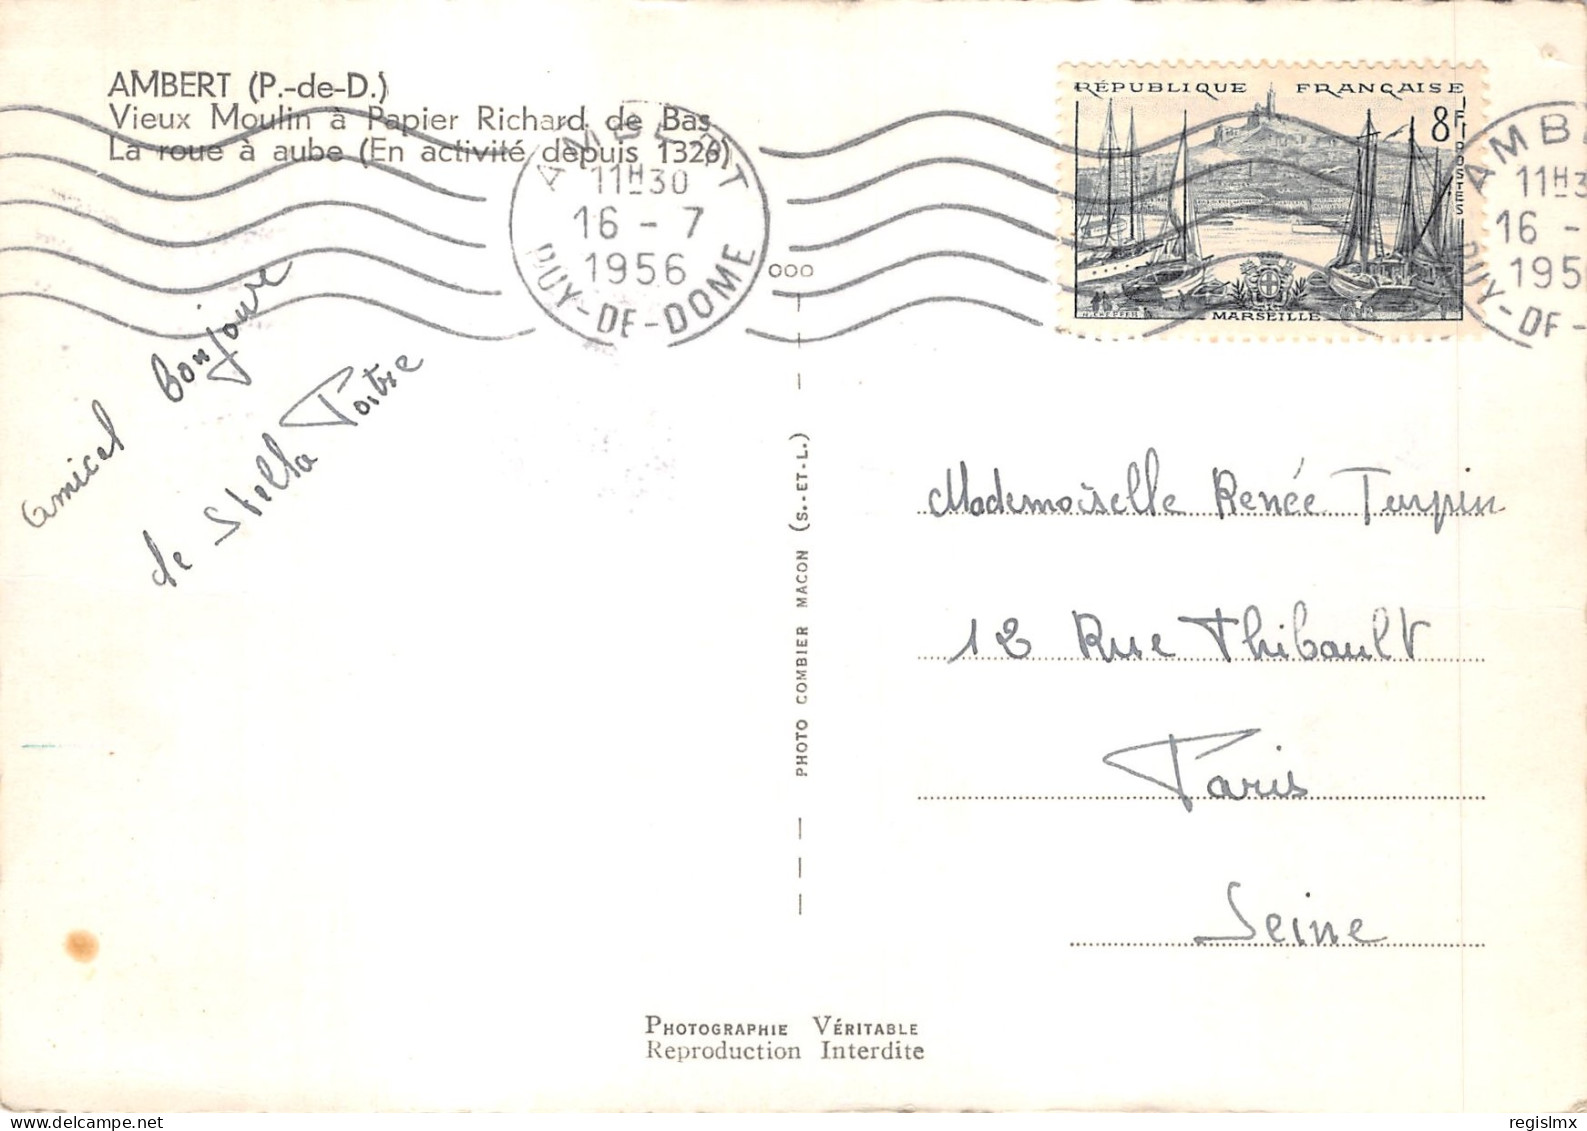 AMBERT (P.-de-D.)
Vieux Moulin à Papier Richard de Bas
La roue à aube (En activité depuis 1326)
AMBERT
11H30
16 - 7
1956
PUY-DE-DOME
RÉPUBLIQUE FRANÇAISE
8F
POSTES
MARSEILLE
AMBE
11H3
16 -
195
PUY-DE-
ooo
amical bonjour
de Stella Poitre
PHOTO COMBIER MACON (S.-ET-L.)
Mademoiselle Renée Turpin
12 Rue Thibault
Paris
Seine
PHOTOGRAPHIE VÉRITABLE
Reproduction Interdite
regislmx